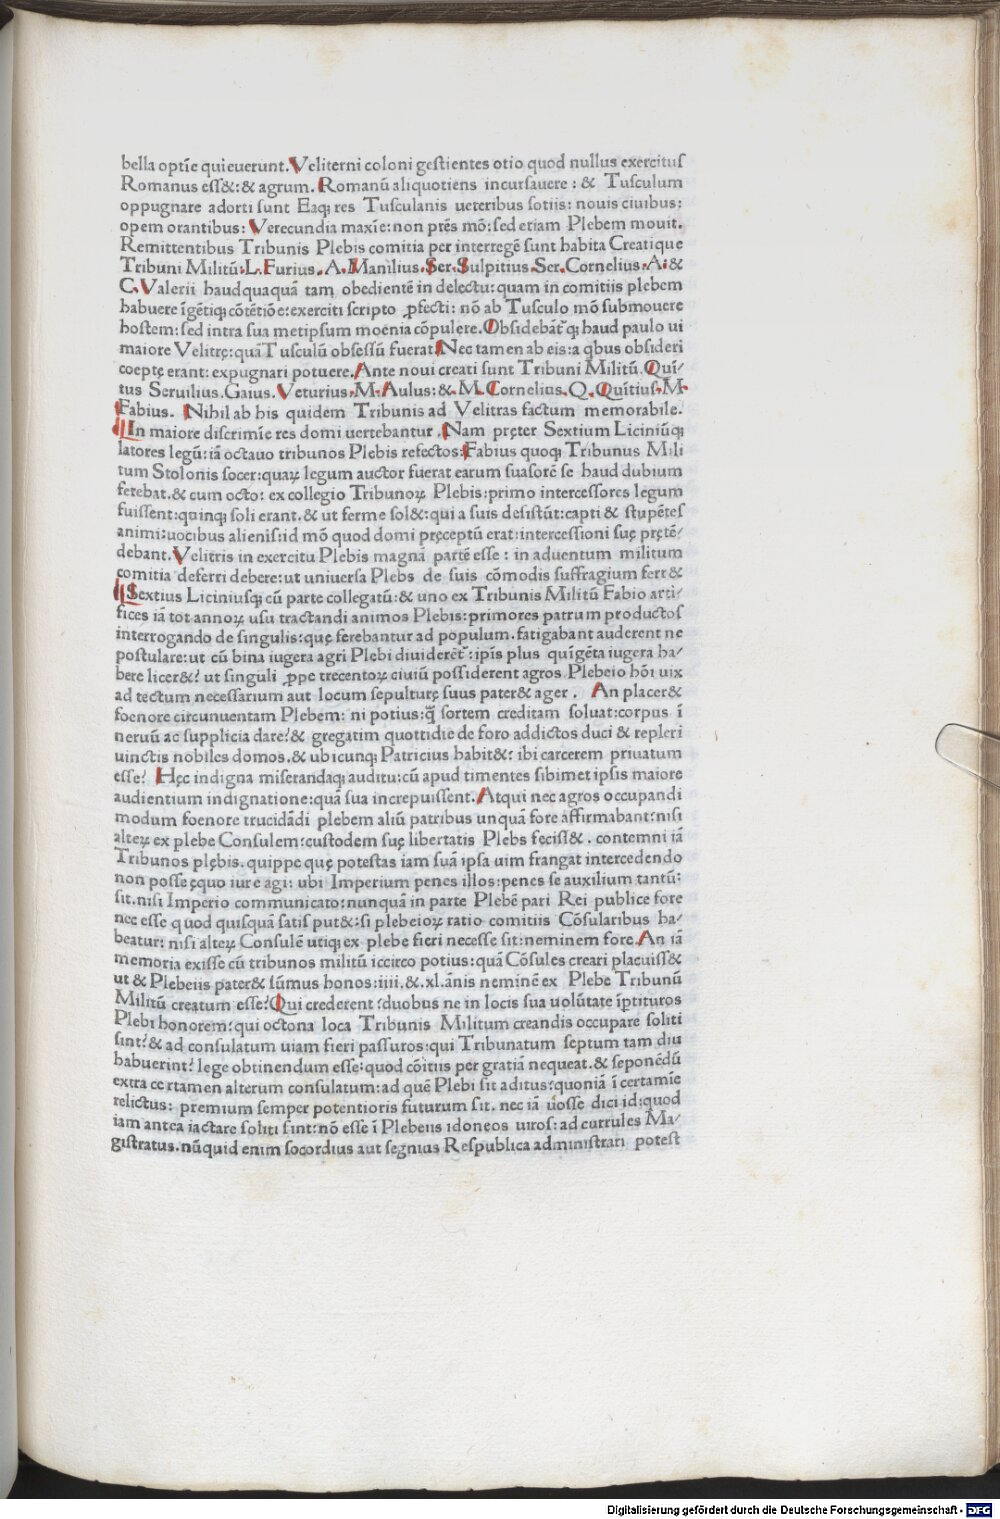 bella optīe quieuerunt. Veliterni coloni gestientes otio quod nullus exercitus
Romanus ess&: & agrum. Romanū aliquotiens incursauere : & Tusculum
oppugnare adorti sunt Eaq; res Tusculanis ueteribus sotiis: nouis ciuibus:
opem orantibus: Verecundia maxīe: non ptēs mō: sed etiam Plebem mouit.
Remittentibus Tribunis Plebis comitia per interregē sunt habita Creatique
Tribuni Militū. L. Furius. A. Manilius. Ser. Sulpitius. Ser. Cornelius. A: &
C. Valerii haudquaquā tam obedientē in delectu: quam in comitiis plebem
habuere īgētiq; cōtētiōe: exerciti scripto ꝓfecti: nō ab Tusculo mō submouere
hostem: sed intra sua metipsum moenia cōpulere. Obsidebāt̄ q; haud paulo ui
maiore Velitrę: quā Tusculū obsessū fuerat. Nec tamen ab eis: a qbus obsideri
coeptę erant: expugnari potuere. Ante noui creati sunt Tribuni Militū. Quī/
tus Seruilius. Gaius. Veturius. M. Aulus: & M. Cornelius. Q. Quītius. M.
Fabius. Nihil ab his quidem Tribunis ad Velitras factum memorabile.
In maiore discrimīe res domi uertebantur. Nam pręter Sextium Liciniūq;
latores legū: iā octauo tribunos Plebis refectos: Fabius quoq; Tribunus Mili
tum Stolonis socer: quaꝝ legum auctor fuerat earum suasorē se haud dubium
ferebat. & cum octo: ex collegio Tribunoꝝ Plebis: primo intercessores legum
fuissent: quinq; soli erant. & ut ferme sol&: qui a suis desistūt: capti & stupētes
animi: uocibus alienis: id mō quod domi pręceptū erat: intercessioni suę pręte/
debant. Velitris in exercitu Plebis magnā partē esse : in aduentum militum
comitia deferri debere: ut uniuersa Plebs de suis cōmodis suffragium ferr&
Sextius Liciniusq; cū parte collegatū: & uno ex Tribunis Militū Fabio arti/
fices iā tot annoꝝ usu tractandi animos Plebis: primores patrum productos
interrogando de singulis: quę ferebantur ad populum. fatigabant auderent ne
postulare: ut cū bina iugera agri Plebi diuiderēt̄: ipīs plus quīgēta iugera ha/
bere licer&? ut singuli ꝓpe trecentoꝝ ciuiū possiderent agros Plebeio hōi uix
ad tectum necessarium aut locum sepulturę suus pater& ager . An placer&
foenore circunuentam Plebem: ni potius: q̄ sortem creditam soluat: corpus ī
neruū ac supplicia dare? & gregatim quottidie de foro addictos duci & repleri
uinctis nobiles domos. & ubicunq; Patricius habit&: ibi carcerem priuatum
esse? Hęc indigna miserandaq; auditu: cū apud timentes sibimet ipsis maiore
audientium indignatione: quā sua increpuissent. Atqui nec agros occupandi
modum foenore trucidādi plebem aliū patribus unquā fore affirmabant: nisi
alteꝝ ex plebe Consulem: custodem suę libertatis Plebs feciss&. contemni iā
Tribunos plębis. quippe quę potestas iam suā ipsa uim frangat intercedendo
non posse ęquo iure agi: ubi Imperium penes illos: penes se auxilium tantū:
sit. nisi Imperio communicato: nunquā in parte Plebē pari Rei publice fore
nec esse quod quisquā satis put&: si plebeioꝝ ratio comitiis Cōsularibus ha/
beatur: nisi alteꝝ Consulē utiq; ex plebe fieri necesse sit: neminem fore. An iā
memoria exisse cū tribunos militū iccirco potius: quā Cōsules creari placuiss&
ut & Plebeiis pater& sūmus honos: iiii. &. xl. ānis neminē ex Plebe Tribunū
Militū creatum esse? Qui crederent? duobus ne in locis sua uolūtate īptituros
Plebi honorem: qui octona loca Tribunis Militum creandis occupare soliti
sint? & ad consulatum uiam fieri passuros: qui Tribunatum septum tam diu
habuerint? lege obtinendum esse: quod cōitiis per gratiā nequeat. & seponēdū
extra certamen alterum consulatum: ad quē Plebi sit aditus: quoniā ī certamīe
relictus: premium semper potentioris futurum sit. nec iā uosse dici id: quod
iam antea iactare soliti sint: nō esse ī Plebeiis idoneos uiros: ad currules Ma/
gistratus. nūquid enim socordius aut segnius Respublica administrari potest
Digitalisierung gefördert durch die Deutsche Forschungsgemeinschaft - DFG